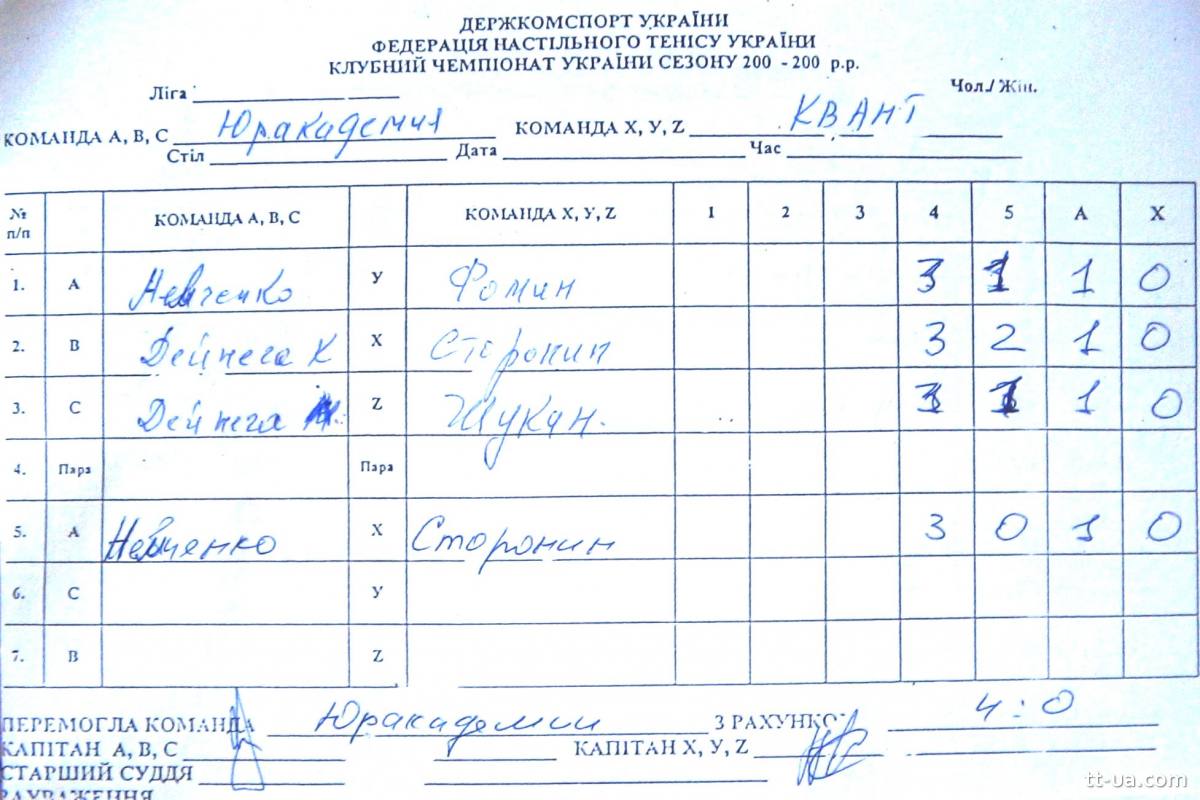 ДЕРЖКОМСПОРТ УКРАЇНИ
ФЕДЕРАЦІЯ НАСТІЛЬНОГО ТЕНІСУ УКРАЇНИ
КЛУБНИЙ ЧЕМПІОНАТ УКРАЇНИ СЕЗОНУ 200 - 200 р.р.
Ліга Чол./ Жін.
КОМАНДА А, В, С Юракадемия КОМАНДА Х, У, Z КВАНТ
Стіл Дата Час
№ п/п КОМАНДА А, В, С КОМАНДА Х, У, Z 1 2 3 4 5 А Х
1. А Немченко У Фомин 3 1 1 0
2. В Дейнега К Х Сторонин 3 2 1 0
3. С Дейнега Z Щукан. 3 1 1 0
4. Пара Пара
5. А Немченко Х Сторонин 3 0 1 0
6. С У
7. В Z
ПЕРЕМОГЛА КОМАНДА Юракадемии З РАХУНКОМ 4:0
КАПІТАН А, В, С КАПІТАН Х, У, Z
СТАРШИЙ СУДДЯ
ЗАУВАЖЕННЯ
tt-ua.com